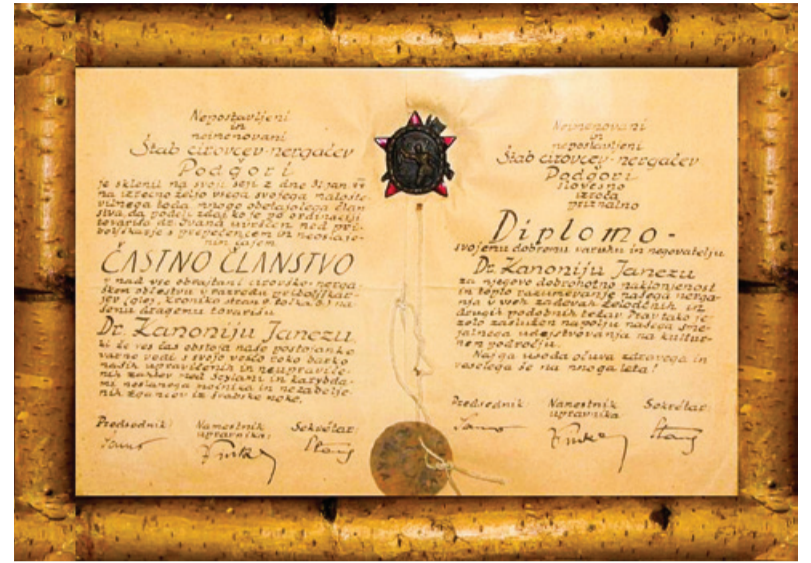 Nepostavljeni
in
neimenovani
Štab cirovcev-nergačev
Podgori
je sklenil na svoji seji z dne 31. jan. 44
na izrecno željo vsega svojega
da podeli zdaj ko je po ordinaciji
tovariša dr. Ivana uvrščen med pri-
boljškarje s prepečencem in neoslaje-
nim čajem
ČASTNO ČLANSTVO
v nad vse obrajtani cirovsko-nerga-
škem občestvu v razredu priboljškar-
jev (glej, kroniko stran 9 točka 2.) na-
šemu dragemu tovarišu
Dr. Kanoniju Janezu,
ki že ves čas obstoja naše postojanke
varno vodi s svojo veščo roko barko
naših upravičenih in neupraviče-
nih zahtev med Scilami in karybda-
mi neslanega močnika in nezabelje-
nih žgancev iz švabske moke.
Predsednik: Namestnik upravnika: Sekretar:
Neimenovani
in
nepostavljeni
Štab cirovcev-nergačev
Podgori
slovesno
izroča
priznalno
Diplomo-
svojemu dobremu varuhu in negovatelju
Dr. Kanoniju Janezu
za njegovo dobrohotno naklonjenost
in toplo razumevanje našega nerga-
nja v vseh zadevah želodčnih in
drugih podobnih težav. Prav tako je-
zelo zaslužen na polju našega sme-
jalnega udejstvovanja na kultur-
nem področju.
Naj ga usoda očuva zdravega in
veselega še na mnoga leta!
Predsednik: Namestnik upravnika: Sekretar: